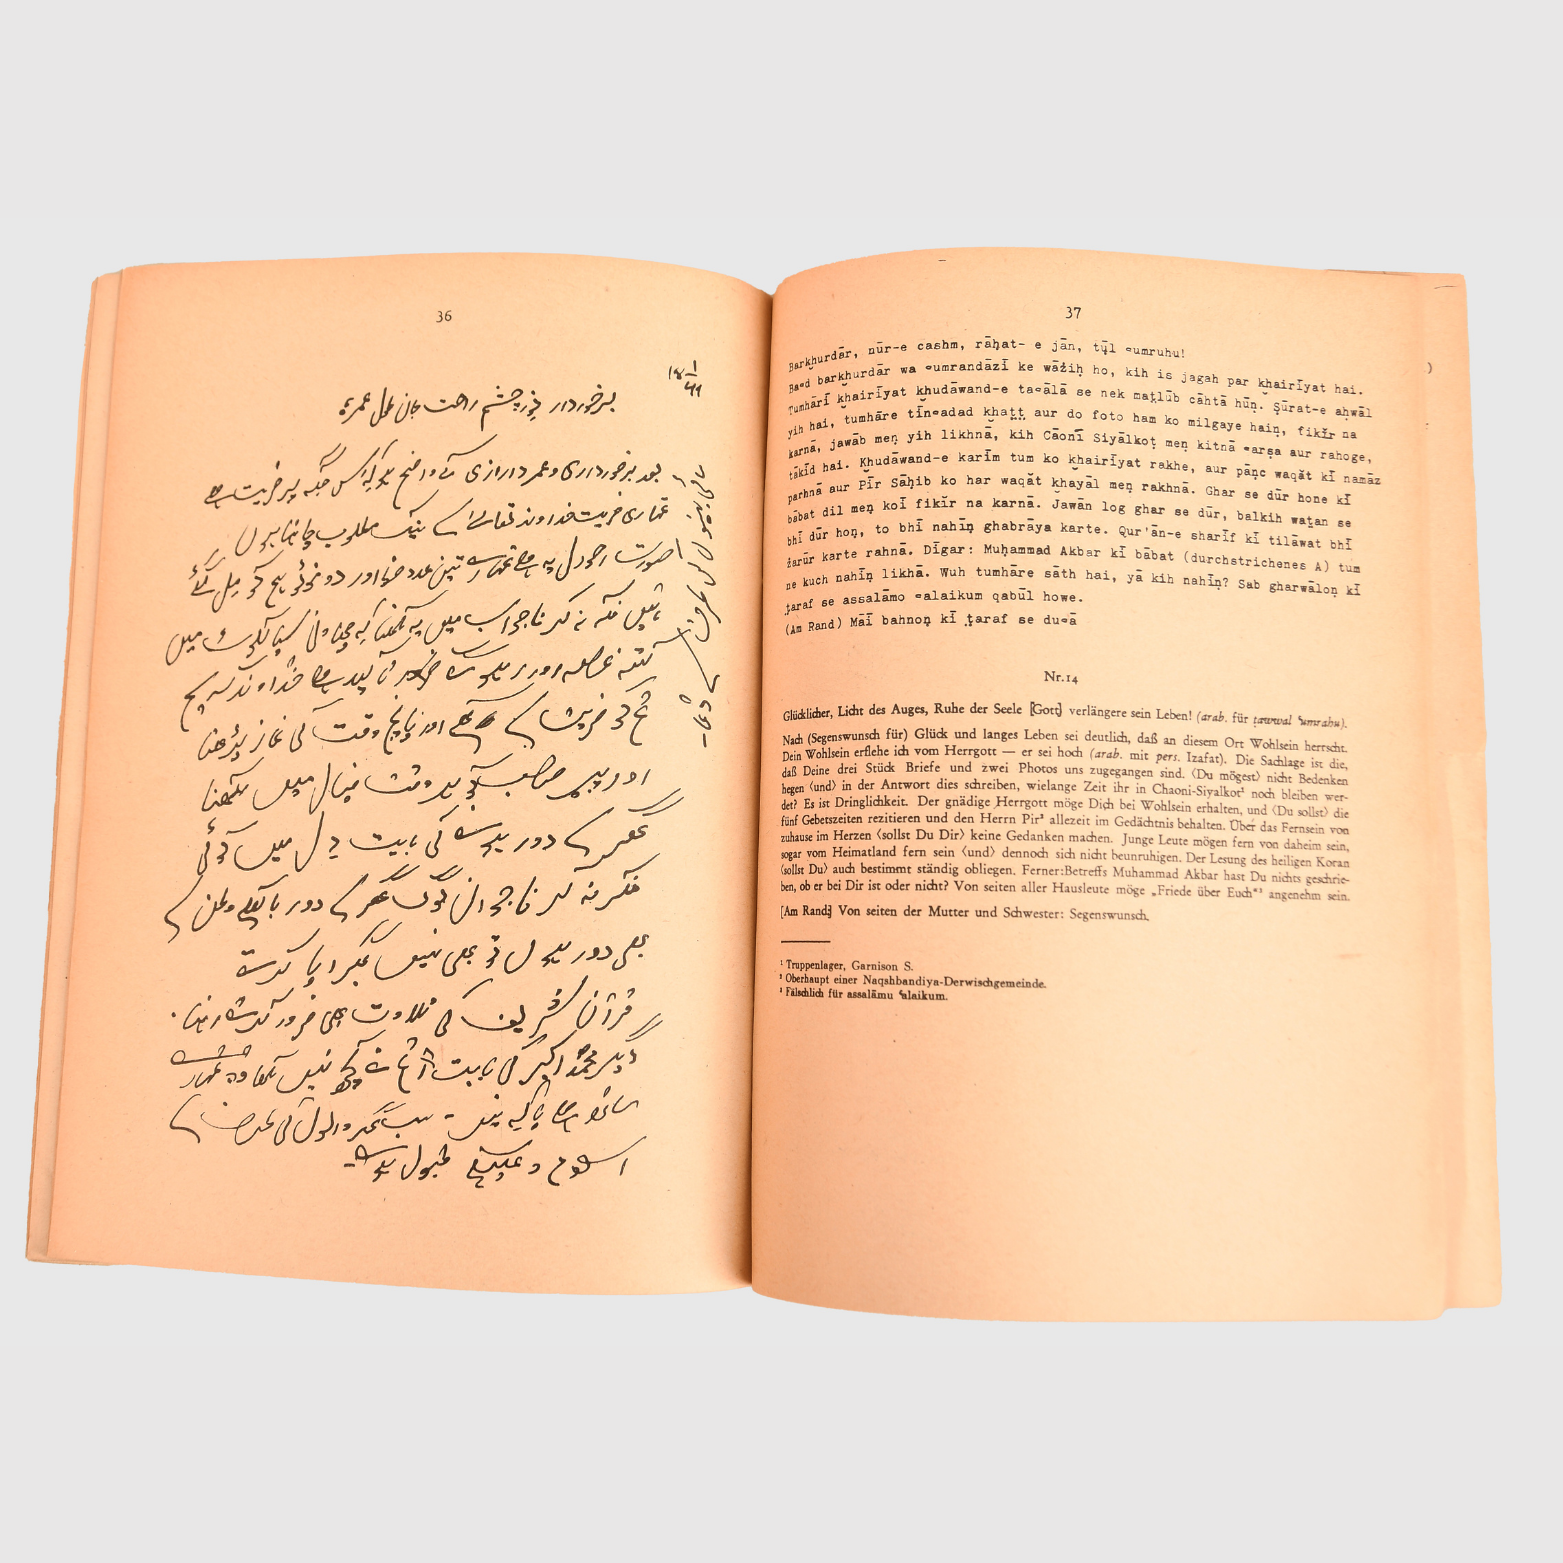 36
۱۸ ۱/۴۱
برخوردار نورِ چشم راحت جان طول عمرہ
بعد برخورداری وعمر درازی کے واضح ہو کہ اس جگہ پر خریت ہے
تمہاری خریت خداوند تعالےٰ سے نیک مطلوب چاہتا ہوں
صورت احول یہ ہے تمہارے تین عدد خط اور دو فوٹو ہم کو مل گئے
ہیں فکر نہ کرنا جواب میں یہ لکھنا کہ چھاونی سیالکوٹ میں
کتنہ عرصہ اور رہوگے تاکید ہے خداوند کریم
تم کو خریت رکھے اور پانچ وقت کی نماز پڑھنا
اور پیر صاحب کو ہر وقت خیال میں رکھنا
گھر سے دور ہونے کی بابت دل میں کوئی
فکر نہ کرنا جوان لوگ گھر سے دور بالکہ وطن سے
بھی دور ہوں تو بھی نہیں گھبرایا کرتے
قرآن شریف کی تلاوت بھی ضرور کرتے رہنا۔
دیگر محمد اکبر کی بابت ا تم نے کچھ نہیں لکھا وہ تمہارے
ساتھ ہے یا کہ نہیں ۔ سب گھر والوں کی طرف سے
اسلام و علیکم قبول ہوے۔
مائی بہنوں کی طرف سے دعا۔
37
Barkhurdār, nūr-e cashm, rāḥat- e jān, ṭūl ʿumruhu!
Baʿd barkhurdār wa ʿumrandāzī ke wāẓiḥ ho, kih is jagah par khairīyat hai.
Tumhārī khairīyat khudāwand-e taʿālā se nek maṭlūb cāhtā hūṇ. Ṣūrat-e aḥwāl
yih hai, tumhāre tīnʿadad khaṭṭ aur do foto ham ko milgaye haiṇ, fikir na
karnā, jawāb meṇ yih likhnā, kih Cāonī Siyālkoṭ meṇ kitnā ʿarṣa aur rahoge,
tākīd hai. Khudāwand-e karīm tum ko khairīyat rakhe, aur pāṇc waqăt kī namāz
parhnā aur Pīr Ṣāḥib ko har waqăt khayāl meṇ rakhnā. Ghar se dūr hone kī
bābat dil meṇ koī fikĭr na karnā. Jawān log ghar se dūr, balkih waṭan se
bhī dūr hoṇ, to bhī nahīṇ ghabrāya karte. Qur'ān-e sharīf kī tilāwat bhī
ẓarūr karte rahnā. Dīgar: Muḥammad Akbar kī bābat (durchstrichenes A) tum
ne kuch nahīṇ likhā. Wuh tumhāre sāth hai, yā kih nahīṇ? Sab gharwāloṇ kī
ṭaraf se assalāmo ʿalaikum qabūl howe.
(Am Rand) Māī bahnoṇ kī ṭaraf se duʿā
Nr. 14
Glücklicher, Licht des Auges, Ruhe der Seele [Gott] verlängere sein Leben! (arab. für ṭawwal ʿumrahu).
Nach (Segenswunsch für) Glück und langes Leben sei deutlich, daß an diesem Ort Wohlsein herrscht.
Dein Wohlsein erflehe ich vom Herrgott — er sei hoch (arab. mit pers. Izafat). Die Sachlage ist die,
daß Deine drei Stück Briefe und zwei Photos uns zugegangen sind. ⟨Du mögest⟩ nicht Bedenken
hegen ⟨und⟩ in der Antwort dies schreiben, wielange Zeit ihr in Chaoni-Siyalkot¹ noch bleiben wer-
det? Es ist Dringlichkeit. Der gnädige Herrgott möge Dich bei Wohlsein erhalten, und ⟨Du sollst⟩ die
fünf Gebetszeiten rezitieren und den Herrn Pir² allezeit im Gedächtnis behalten. Über das Fernsein von
zuhause im Herzen ⟨sollst Du Dir⟩ keine Gedanken machen. Junge Leute mögen fern von daheim sein,
sogar vom Heimatland fern sein ⟨und⟩ dennoch sich nicht beunruhigen. Der Lesung des heiligen Koran
⟨sollst Du⟩ auch bestimmt ständig obliegen. Ferner: Betreffs Muhammad Akbar hast Du nichts geschrie-
ben, ob er bei Dir ist oder nicht? Von seiten aller Hausleute möge „Friede über Euch“³ angenehm sein.
[Am Rand] Von seiten der Mutter und Schwester: Segenswunsch.
¹ Truppenlager, Garnison S.
² Oberhaupt einer Naqshbandiya-Derwischgemeinde.
³ Fälschlich für assalāmu ʿalaikum.